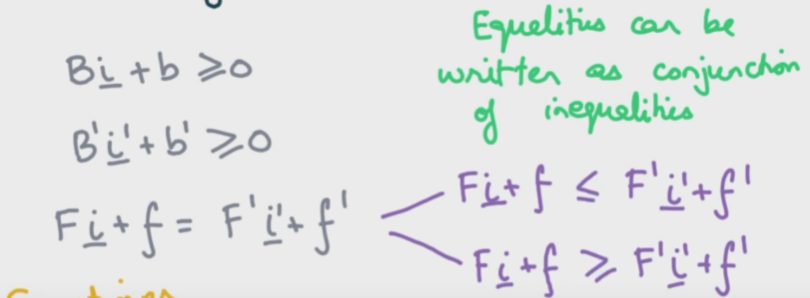 Bi̲ + b ⩾ 0
B'i̲' + b' ⩾ 0
Fi̲ + f = F'i̲' + f'
Equalities can be
written as conjunction
of inequalities
Fi̲ + f ≤ F'i̲' + f'
Fi̲ + f ⩾ F'i̲' + f'